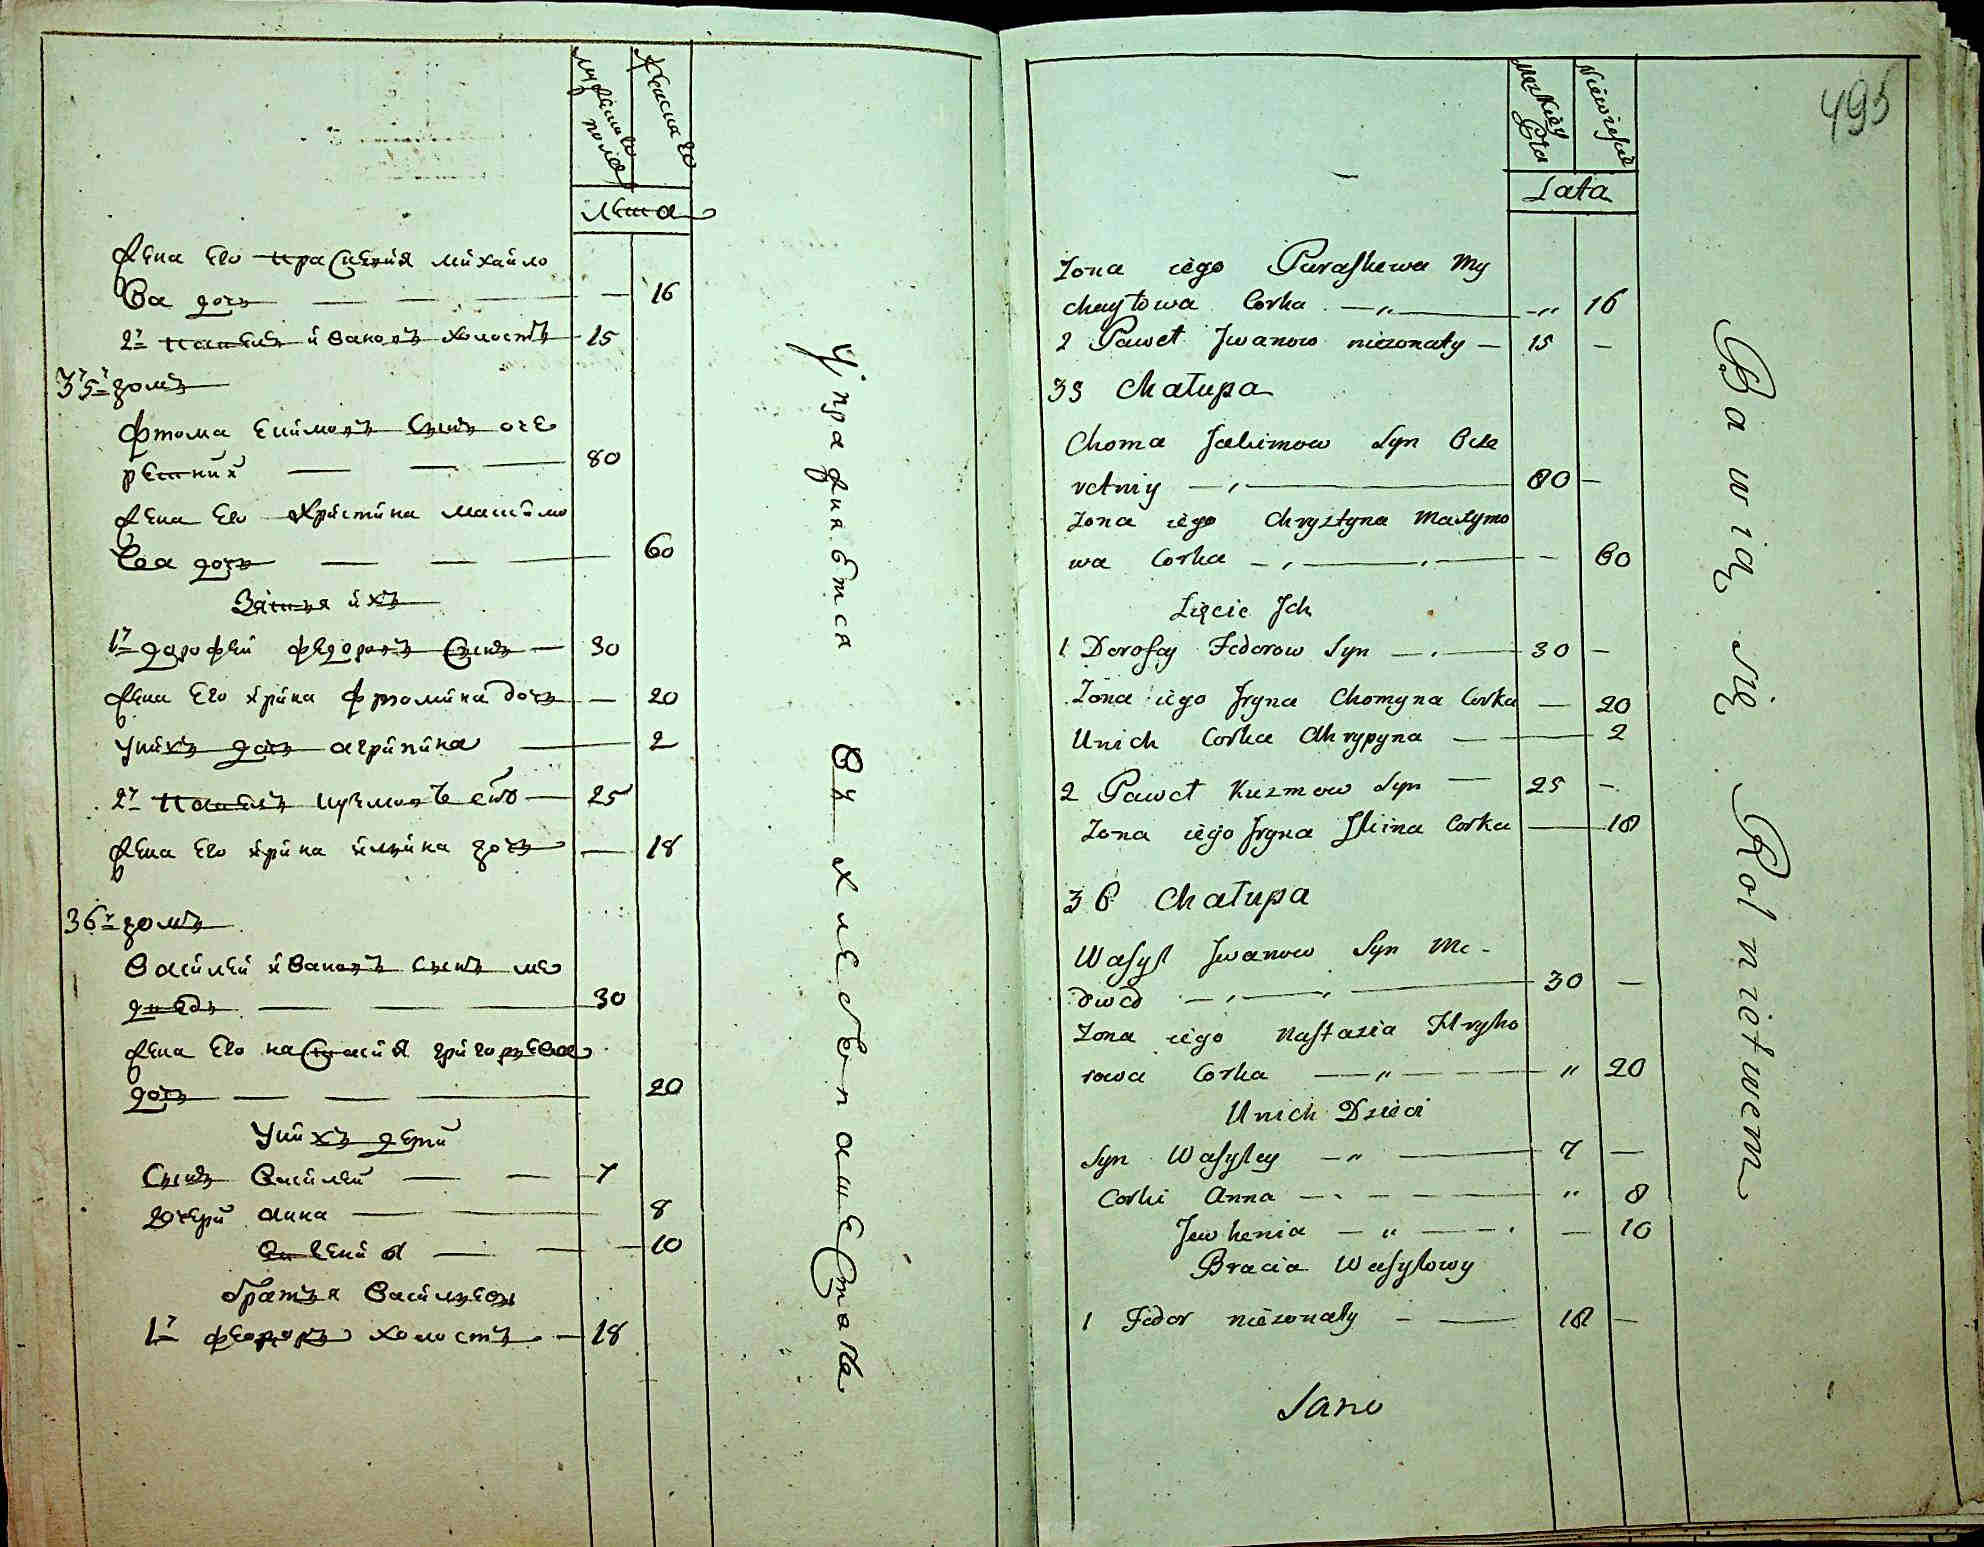 мужеска пола
женска го
лета
жена его параскевия михайло
ва дочь 16
2й павелъ ивановъ холостъ 15
35й домъ
фтома екимовъ сынъ оче
ретний 80
жена его христина максимо
ва дочь 60
Зятья ихъ
1й дорофей федоровъ сынъ 30
жена его ирина фтомина дочь 20
унихъ дочь агрипина 2
2й павелъ кузмовъ сынъ 25
жена его ирина ильина дочь 18
36й домъ
василей ивановъ сынъ ме
дведь 30
жена его настасия григорьева
дочь 20
унихъ дети
сынъ василей 7
дочери анна 8
евгения 10
братья васильевы
1й федоръ холостъ 18
Упражняются
въ хлебопашестве
495
Męzkiey Płci
Niewieskiey
Lata
Zona iego Paraskewa My
chayłowa Corka 16
2 Paweł Iwanow niezonaty 15
35 Chałupa
Choma Jakimow SynOcze
retniy 80
Zona iego Chrystyna Maxymo
wa Corka 60
Zięcie Ich
1 Dorofey Fedorow Syn 30
Zona iego Iryna Chomyna Corka 20
Unich Corka Ahrypyna 2
2 Paweł Kuzmow Syn 25
Zona iego Iryna Iliina Corka 18
36 Chałupa
Wasyl Iwanow Syn Me-
dwed 30
Zona iego Nastazia Hryho
rowa Corka 20
Unich Dzieci
Syn Wasyley 7
Corki Anna 8
Jewhenia 10
Bracia Wasylowy
1 Fedor niezonaty 18
Bawią się Rolnictwem